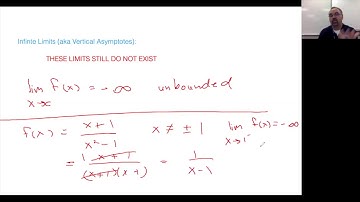 Infinte Limits (aka Vertical Asymptotes):
THESE LIMITS STILL DO NOT EXIST
lim f(x) = -∞ unbounded
x→∝
f(x) = x+1 / x²-1 x ≠ ±1 lim f(x) = -∞
x→1⁻
= 1 x+1 / (x+1)(x-1) = 1 / x-1